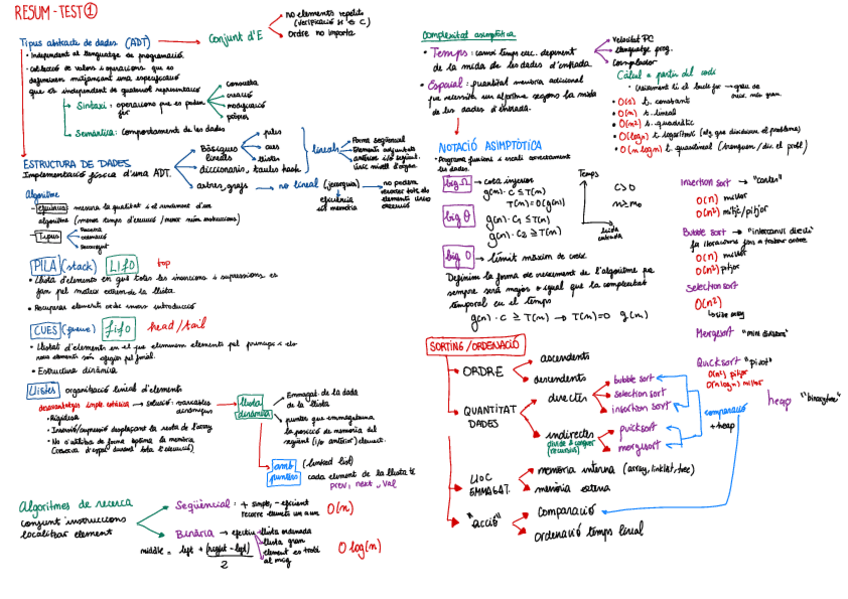 RESUM-TEST①
Tipus abstracte de dades (ADT)
Conjunt d'E
no elements repetits
(verificació
Ordre no importa
• independent al llenguatge de programació
• col·lecció de valors i operacions que es
defineixen mitjançant una especificació
que és independent de qualsevol representació
Sintaxi: operacions que es poden
fer
consulta
creació
modificació
pròpies
Semàntica: comportament de les dades
ESTRUCTURA DE DADES
Implementació física d'una ADT.
Bàsiques
lineals
piles
cues
llistes
diccionaris, taules hash
lineals
Forma seqüencial
arbres, grafs
no lineal (jerarquia)
eficiència
memòria
no podem
recórrer tots els
elements
Algorisme
eficiència
mesura la qualitat i el rendiment d'un
algorisme (menor temps d'execució / menor núm instruccions)
Tipus
PILA (stack)
LIFO
top
• Llista d'elements en què totes les insercions i supressions es
fan pel mateix extrem de la llista
• Recuperar elements ordre invers introducció
CUES (queue)
fifo
head/tail
• Llistat d'elements en el que eliminem elements pel principi i els
nous elements són afegits pel final.
• Estructura dinàmica
Llistes
organització lineal d'elements
desavantatges imple. estàtica → solució: variables
dinàmiques
• Rigidesa
• Inserció/supressió desplaçant la resta de l'array
• No s'utilitza de forma òptima la memòria
llista
dinàmica
Emmagat. de la dada
de la llista
punter que emmagatzema
la posició de memòria del
següent (i/o anterior) element.
amb
punters
(linked list)
cada element de la llista té
prev, next, val
Algoritmes de recerca
conjunt instruccions
localitzar element
Seqüèncial: + simple, - eficient
recorre elements un a un
O(n)
Binària → efectiu
llista ordenada
llista gran
element es troba
al mig
middle = left + (right - left)
2
O log(n)
Complexitat asimptòtica
• Temps: canvi temps exec. depenent
de la mida de les dades d'entrada.
velocitat PC
llenguatge prog.
compilador
• Espaial: quantitat memòria addicional
que necessita un algorisme segons la mida
de les dades d'entrada.
Càlcul a partir del codi
• O(1) t. constant
• O(n) t. lineal
• O(n²) t. quadràtic
• O(logn) t. logarítmic (alg que divideixen el problema)
• O(n logn) t. quasilineal
NOTACIÓ ASIMPTÒTICA
les dades.
big Ω
→ cota inferior
g(n)·C ≤ T(n)
T(n) = Ω(g(n))
big θ
g(n)·C₁ ≤ T(n)
g(n)·C₂ ≥ T(n)
Temps
mida
entrada
C>0
n≥n₀
big O
→ límit màxim de creix
Definim la forma de creixement de l'algorisme que
sempre serà major o igual que la complexitat
temporal en el temps
g(n)·C ≥ T(n) → T(n)=O g(n)
Insertion sort → "cartes"
O(n) millor
O(n²) mitjà/pitjor
Bubble sort → "intercanvi directe"
O(n) millor
O(n²) pitjor
Selection sort
O(n²)
Mergesort
Quicksort "pivot"
O(n²) pitjor
O(n logn) millor
heap
SORTING/ORDENACIÓ
ORDRE
ascendents
descendents
QUANTITAT
DADES
directes
bubble sort
selection sort
insertion sort
indirectes
divide & conquer
(recursius)
quicksort
mergesort
comparació
+ heap
LLOC
EMMAGAT.
memòria interna (array, linklist, tree)
memòria externa
"acció"
comparació
ordenació temps lineal